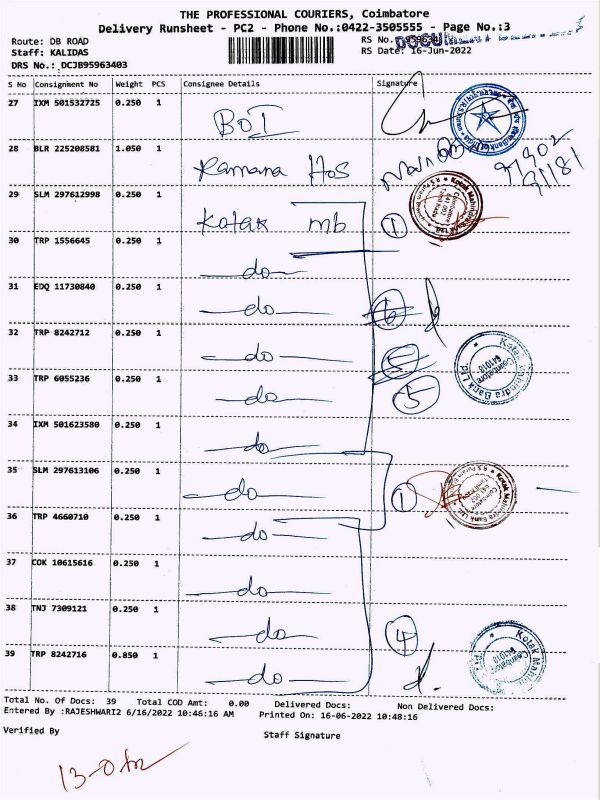 THE PROFESSIONAL COURIERS, Coimbatore
Delivery Runsheet - PC2 - Phone No.:0422-3505555 - Page No.:3
Route: DB ROAD
RS No.
Staff: KALIDAS
RS Date: 16-Jun-2022
DRS No.: DCJB95963403
S No Consignment No Weight PCS Consignee Details Signature
27 IXM 501532725 0.250 1 BOI
28 BLR 225208581 1.050 1 Ramana Hos
29 SLM 297612998 0.250 1 Kotak mb 1
30 TRP 1556645 0.250 1 do
31 EDQ 11730840 0.250 1 do 6
32 TRP 8242712 0.250 1 do
33 TRP 6055236 0.250 1 do 5
34 IXM 501623580 0.250 1 do
35 SLM 297613106 0.250 1 do 1
36 TRP 4660710 0.250 1 do
37 COK 10615616 0.250 1 do
38 TNJ 7309121 0.250 1 do 4
39 TRP 8242716 0.850 1 do
Total No. Of Docs: 39 Total COD Amt: 0.00 Delivered Docs: Non Delivered Docs:
Entered By :RAJESHWARI2 6/16/2022 10:46:16 AM Printed On: 16-06-2022 10:48:16
Verified By
Staff Signature